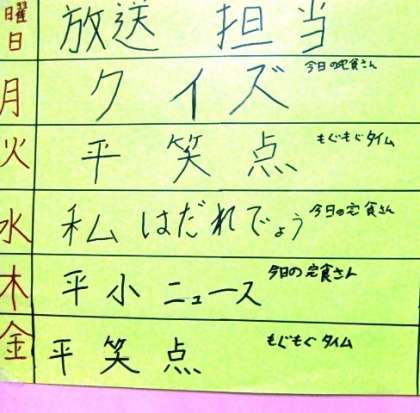 曜日 放送 担当
月 クイズ 今日の定食さん
火 平笑点 もぐもぐタイム
水 私はだれでしょう 今日の定食さん
木 平小ニュース 今日の定食さん
金 平笑点 もぐもぐタイム